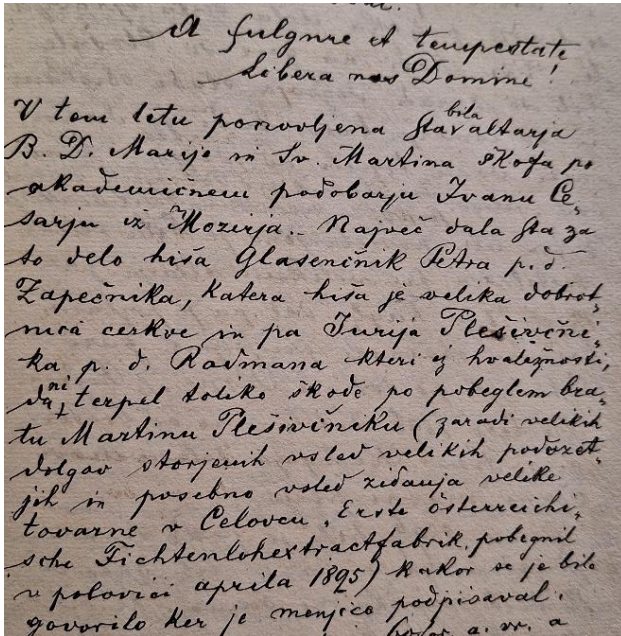 A fulgure et tempestate
Libera nos Domine!
V tem letu ponovljena sta bila altarja
B. D. Marije in Sv. Martina škofa po
akademičnem podobarju Ivanu Ce-
sarju iz Mozirja. Največ dala sta za
to delo hiša Glasenčnik Petra p. d.
Zapečnika, katera hiša je velika dobrot-
nica cerkve in pa Jurija Plešivčni-
ka p. d. Radmana kteri iz hvaležnosti,
da ni terpel toliko škode po pobeglem bra-
tu Martinu Plešivčniku (zaradi velikih
dolgov storjenih vsled velikih podvzet-
jih in posebno vsled zidanja velike
tovarne v Celovcu „Erste österreichi-
sche Fichtenlohextractfabrik, pobegnil
v polovici aprila 1895) kakor se je bilo
govorilo ker je menjice podpisaval.
a. vr. a